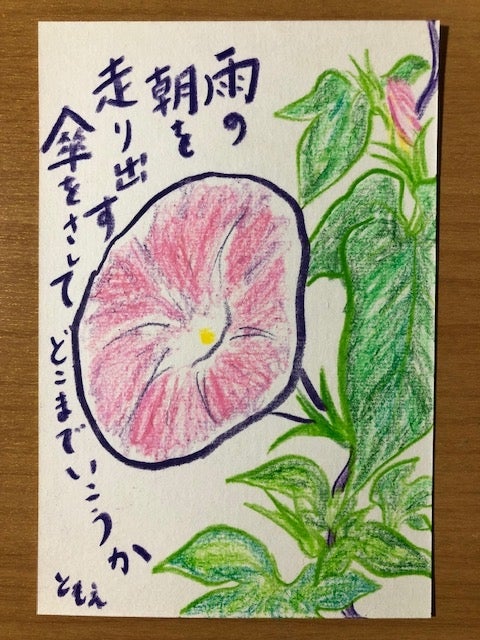 雨の
朝を
走り出す
傘をさしてどこまでいこうか
ともえ